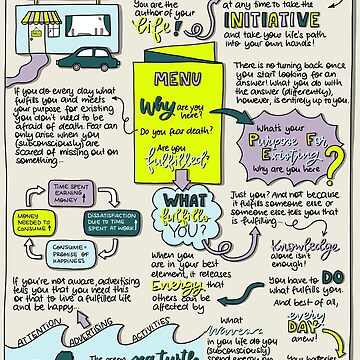 You are the
author of your
life!
at any time to take the
INITIATIVE
and take your life's path
into your own hands!
MENU
Why are you
here?
Do you fear death?
Are you
fulfilled?
There is no turning back once
you start looking for an
answer! What you do with
the answer (differently),
however, is entirely up to you.
If you do every day what
fulfills you and meets
your purpose for existing
you don't need to be
afraid of death. Fear can
only arise when you
(subconsciously) are
scared of missing out on
something...
What's your
Purpose For
Existing?
Why are you here
?
TIME SPENT
EARNING
MONEY ↑
MONEY
NEEDED TO
CONSUME ↑
DISSATISFACTION
DUE TO TIME
SPENT AT WORK ↑
CONSUME =
PROMISE OF
HAPPINESS
WHAT
fulfills
YOU?
Just you? And not because it
fulfills someone else or
someone else tells you that
is fulfilling...
Knowledge
alone isn't
enough!
When
you are
in your best
element, it releases
Energy that
others can be
affected by
You have to DO
what fulfills you.
And best of all,
every
DAY
anew!
If you're not aware, advertising
tells you that you need this
or that to live a fulfilled life
and be happy...
ATTENTION
ADVERTISING
ACTIVITIES
The green sea turtle
What
in you life do you
subconsciously